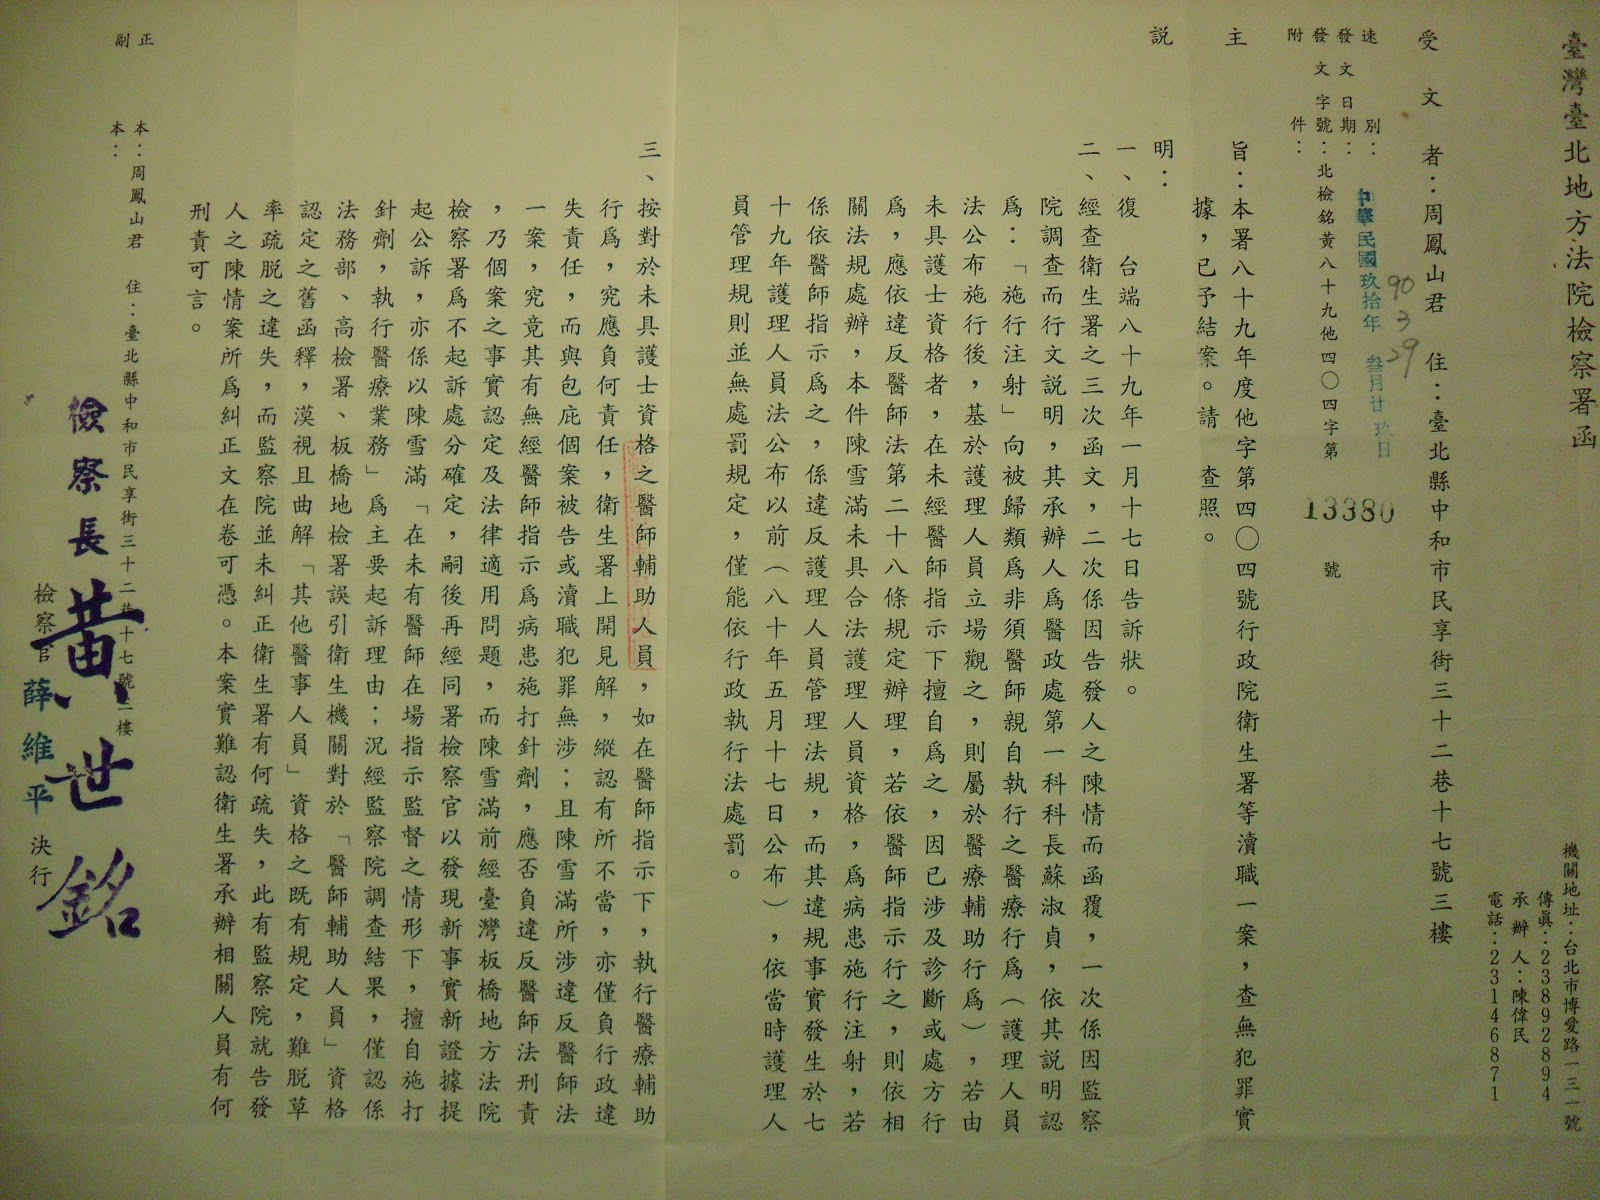 臺灣臺北地方法院檢察署函
機關地址：台北市博愛路一三一號
傳真：23892894
承辦人：陳偉民
電話：23146871
受文者：周鳳山君　住：臺北縣中和市民享街三十二巷十七號三樓
速別：
發文日期：中華民國玖拾年叁月廿玖日
90 3 29
發文字號：北檢銘黃八十九他四〇四字第13380號
附件：
主旨：本署八十九年度他字第四〇四號行政院衛生署等瀆職一案，查無犯罪實
據，已予結案。請　查照。
說明：
一、復　台端八十九年一月十七日告訴狀。
二、經查衛生署之三次函文，二次係因告發人之陳情而函覆，一次係因監察
院調查而行文說明，其承辦人為醫政處第一科科長蘇淑貞，依其說明認
為：「施行注射」向被歸類為非須醫師親自執行之醫療行為（護理人員
法公布施行後，基於護理人員立場觀之，則屬於醫療輔助行為），若由
未具護士資格者，在未經醫師指示下擅自為之，因已涉及診斷或處方行
為，應依違反醫師法第二十八條規定辦理，若依醫師指示行之，則依相
關法規處辦，本件陳雪滿未具合法護理人員資格，為病患施行注射，若
係依醫師指示為之，係違反護理人員管理法規，而其違規事實發生於七
十九年護理人員法公布以前（八十年五月十七日公布），依當時護理人
員管理規則並無處罰規定，僅能依行政執行法處罰。
三、按對於未具護士資格之醫師輔助人員，如在醫師指示下，執行醫療輔助
行為，究應負何責任，衛生署上開見解，縱認有所不當，亦僅負行政違
失責任，而與包庇個案被告或瀆職犯罪無涉；且陳雪滿所涉違反醫師法
一案，究竟其有無經醫師指示為病患施打針劑，應否負違反醫師法刑責
，乃個案之事實認定及法律適用問題，而陳雪滿前經臺灣板橋地方法院
檢察署為不起訴處分確定，嗣後再經同署檢察官以發現新事實新證據提
起公訴，亦係以陳雪滿「在未有醫師在場指示監督之情形下，擅自施打
針劑，執行醫療業務」為主要起訴理由；況經監察院調查結果，僅認係
法務部、高檢署、板橋地檢署誤引衛生機關對於「醫師輔助人員」資格
認定之舊函釋，漠視且曲解「其他醫事人員」資格之既有規定，難脫草
率疏脫之違失，而監察院並未糾正衛生署有何疏失，此有監察院就告發
人之陳情案所為糾正文在卷可憑。本案實難認衛生署承辦相關人員有何
刑責可言。
正本：周鳳山君　住：臺北縣中和市民享街三十二巷十七號三樓
副本：
檢察長黃世銘
檢察官薛維平決行